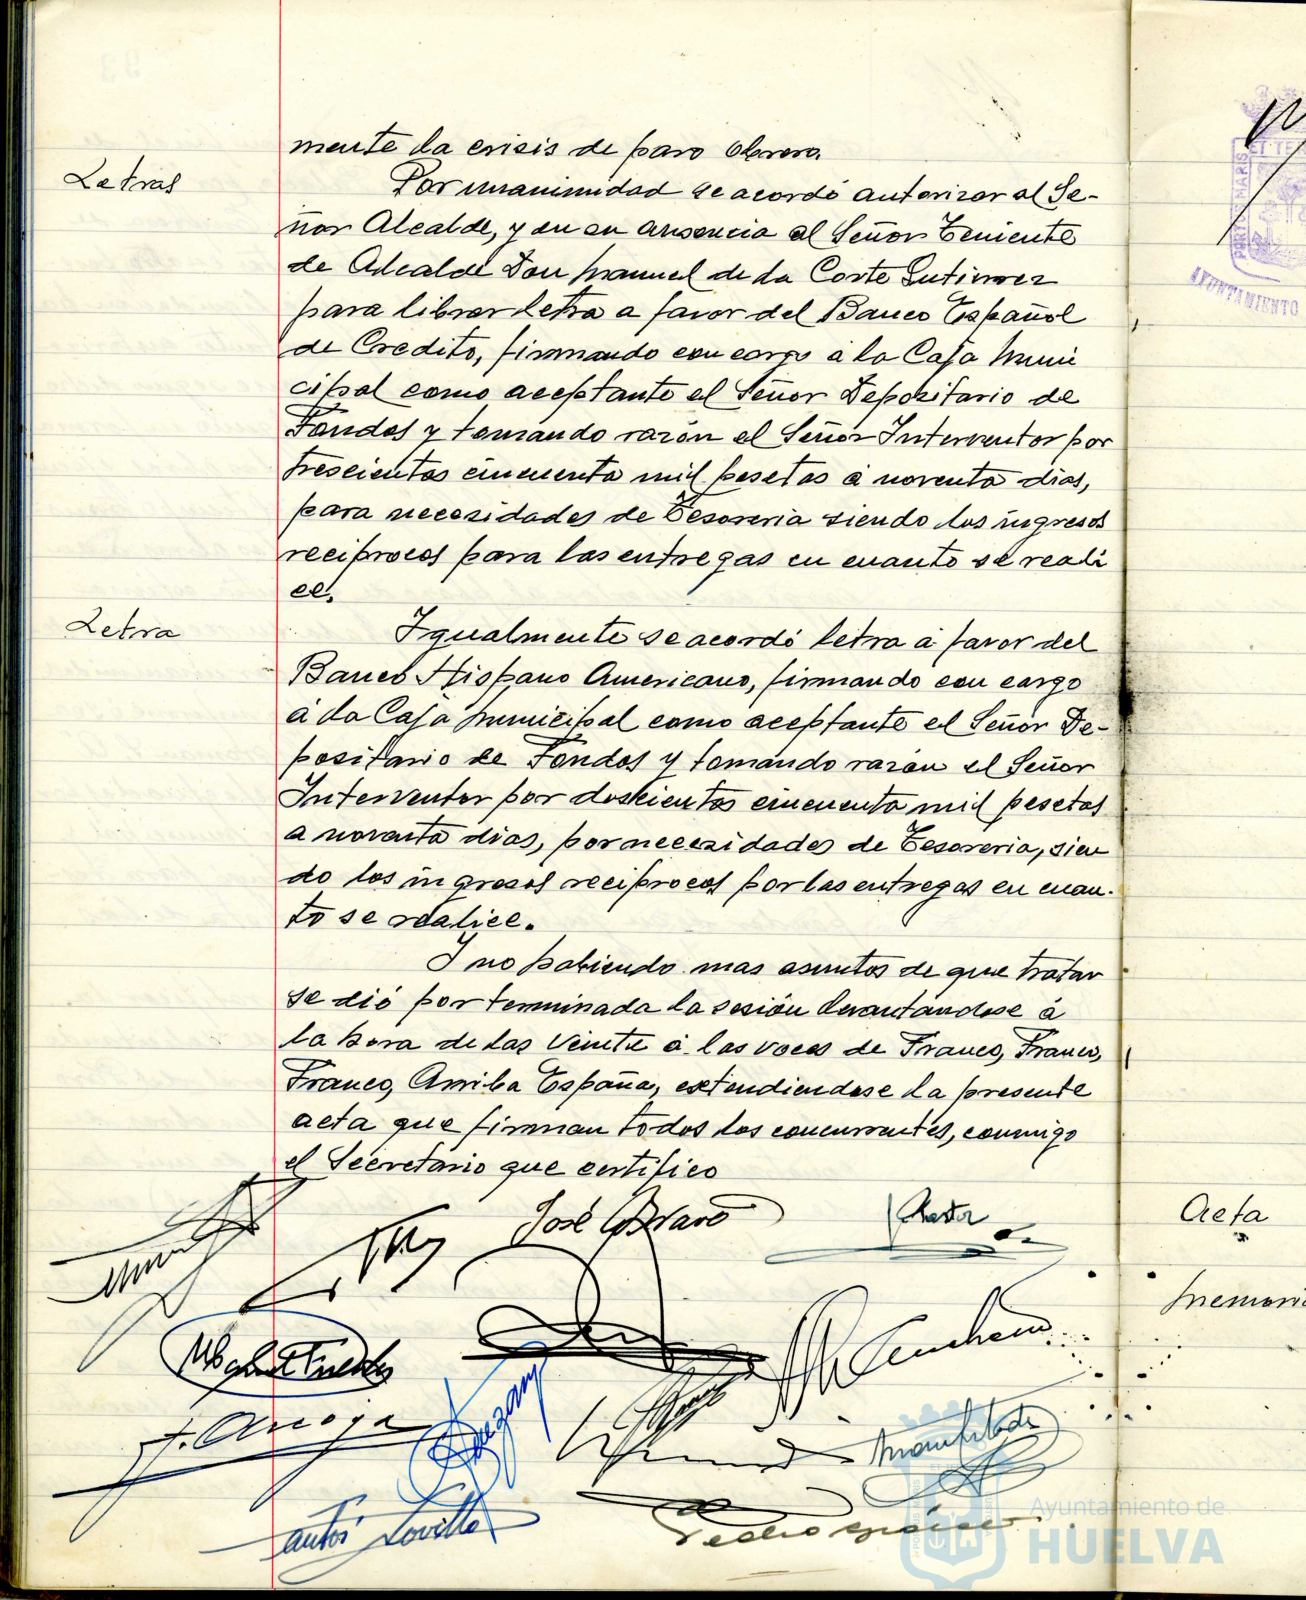 mente la crisis de paro obrero.
Letras
Por unanimidad se acordó autorizar al Se-
ñor Alcalde, y en su ausencia al Señor Teniente
de Alcalde Don Manuel de la Corte Gutierrez
para librar letra a favor del Banco Español
de Credito, firmando con cargo á la Caja Muni
cipal como aceptante el Señor Depositario de
Fondos y tomando razón el Señor Interventor por
trescientas cincuenta mil pesetas á noventa dias,
para necesidades de Tesoreria siendo los ingresos
reciprocos para las entregas en cuanto se reali
ce.
Letra
Igualmente se acordó letra á favor del
Banco Hispano Americano, firmando con cargo
á la Caja Municipal como aceptante el Señor De-
positario de Fondos y tomando razón el Señor
Interventor por doscientas cincuenta mil pesetas
a noventa dias, por necesidades de Tesoreria, sien
do los ingresos reciprocos por las entregas en cuan-
to se realice.
I no habiendo mas asuntos de que tratar
se dió por terminada la sesión levantandose á
la hora de las veinte á las voces de Franco, Franco,
Franco, Arriba España, extendiendose la presente
acta que firman todos los concurrentes, conmigo
el Secretario que certifico
José
J. Arroyo
Pedro
Acta
Memori
AYUNTAMIENTO
Ayuntamiento de
HUELVA